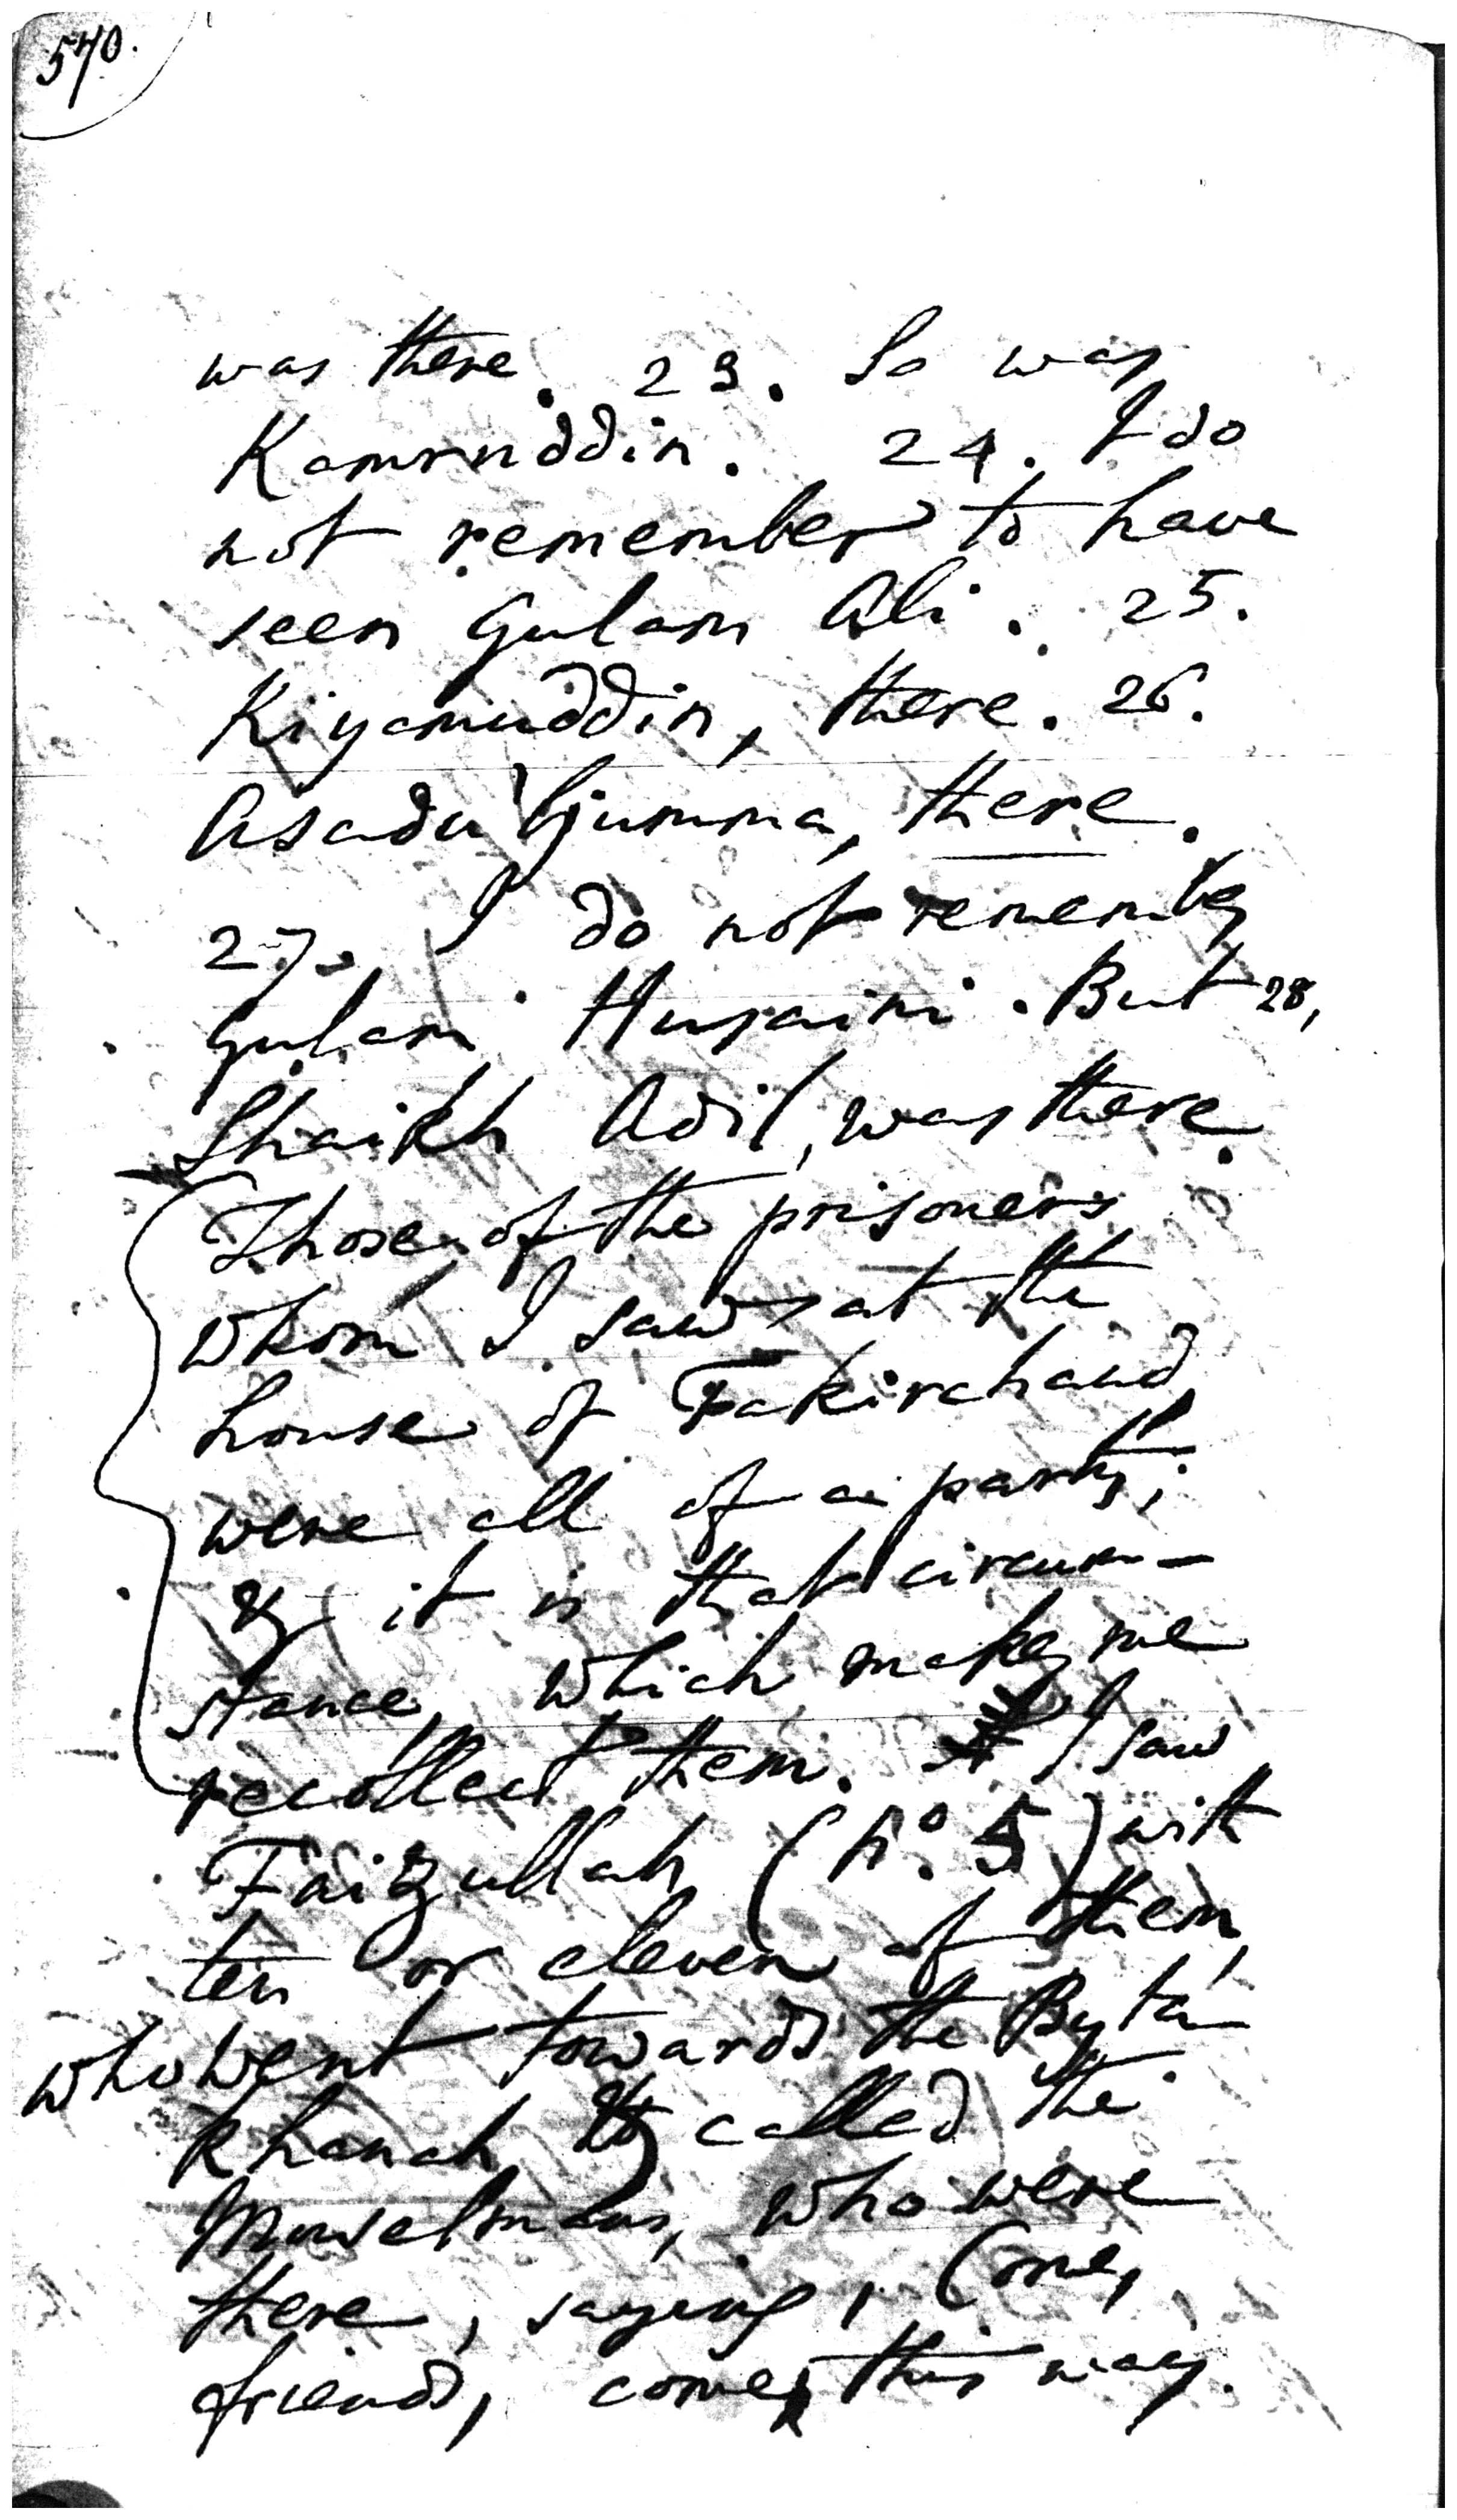 570.
was there. 23. So was
Kamruddin. 24. I do
not remember to have
seen Gulam Ali. 25.
Kiyamuddin, there. 26.
Asadu'ljumma, there.
27. I do not remember
Gulam Husaini. But 28,
Shaikh Adil, was there.
Those of the prisoners,
whom I saw at the
house of Fakirchand,
were all of a party;
& it is that circum-
stance, which makes me
recollect them. I saw
Faizullah (No. 5) with
ten or eleven of them,
who went towards the Byta
khanah & called the
Muselmans, who were
there, saying, Come,
friends, come this way.